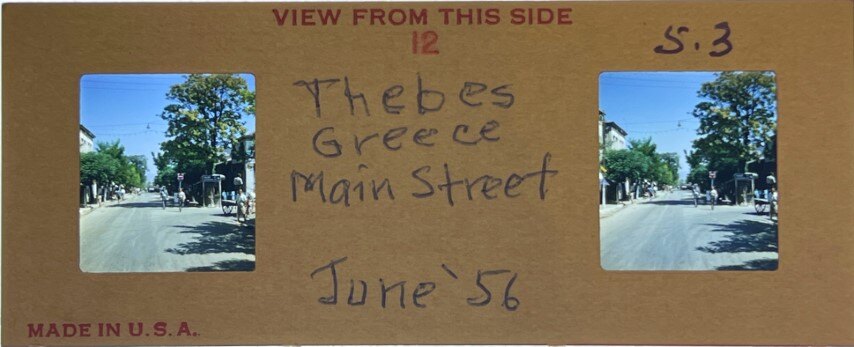 VIEW FROM THIS SIDE
12
5.3
Thebes
Greece
Main Street
June '56
MADE IN U.S.A.